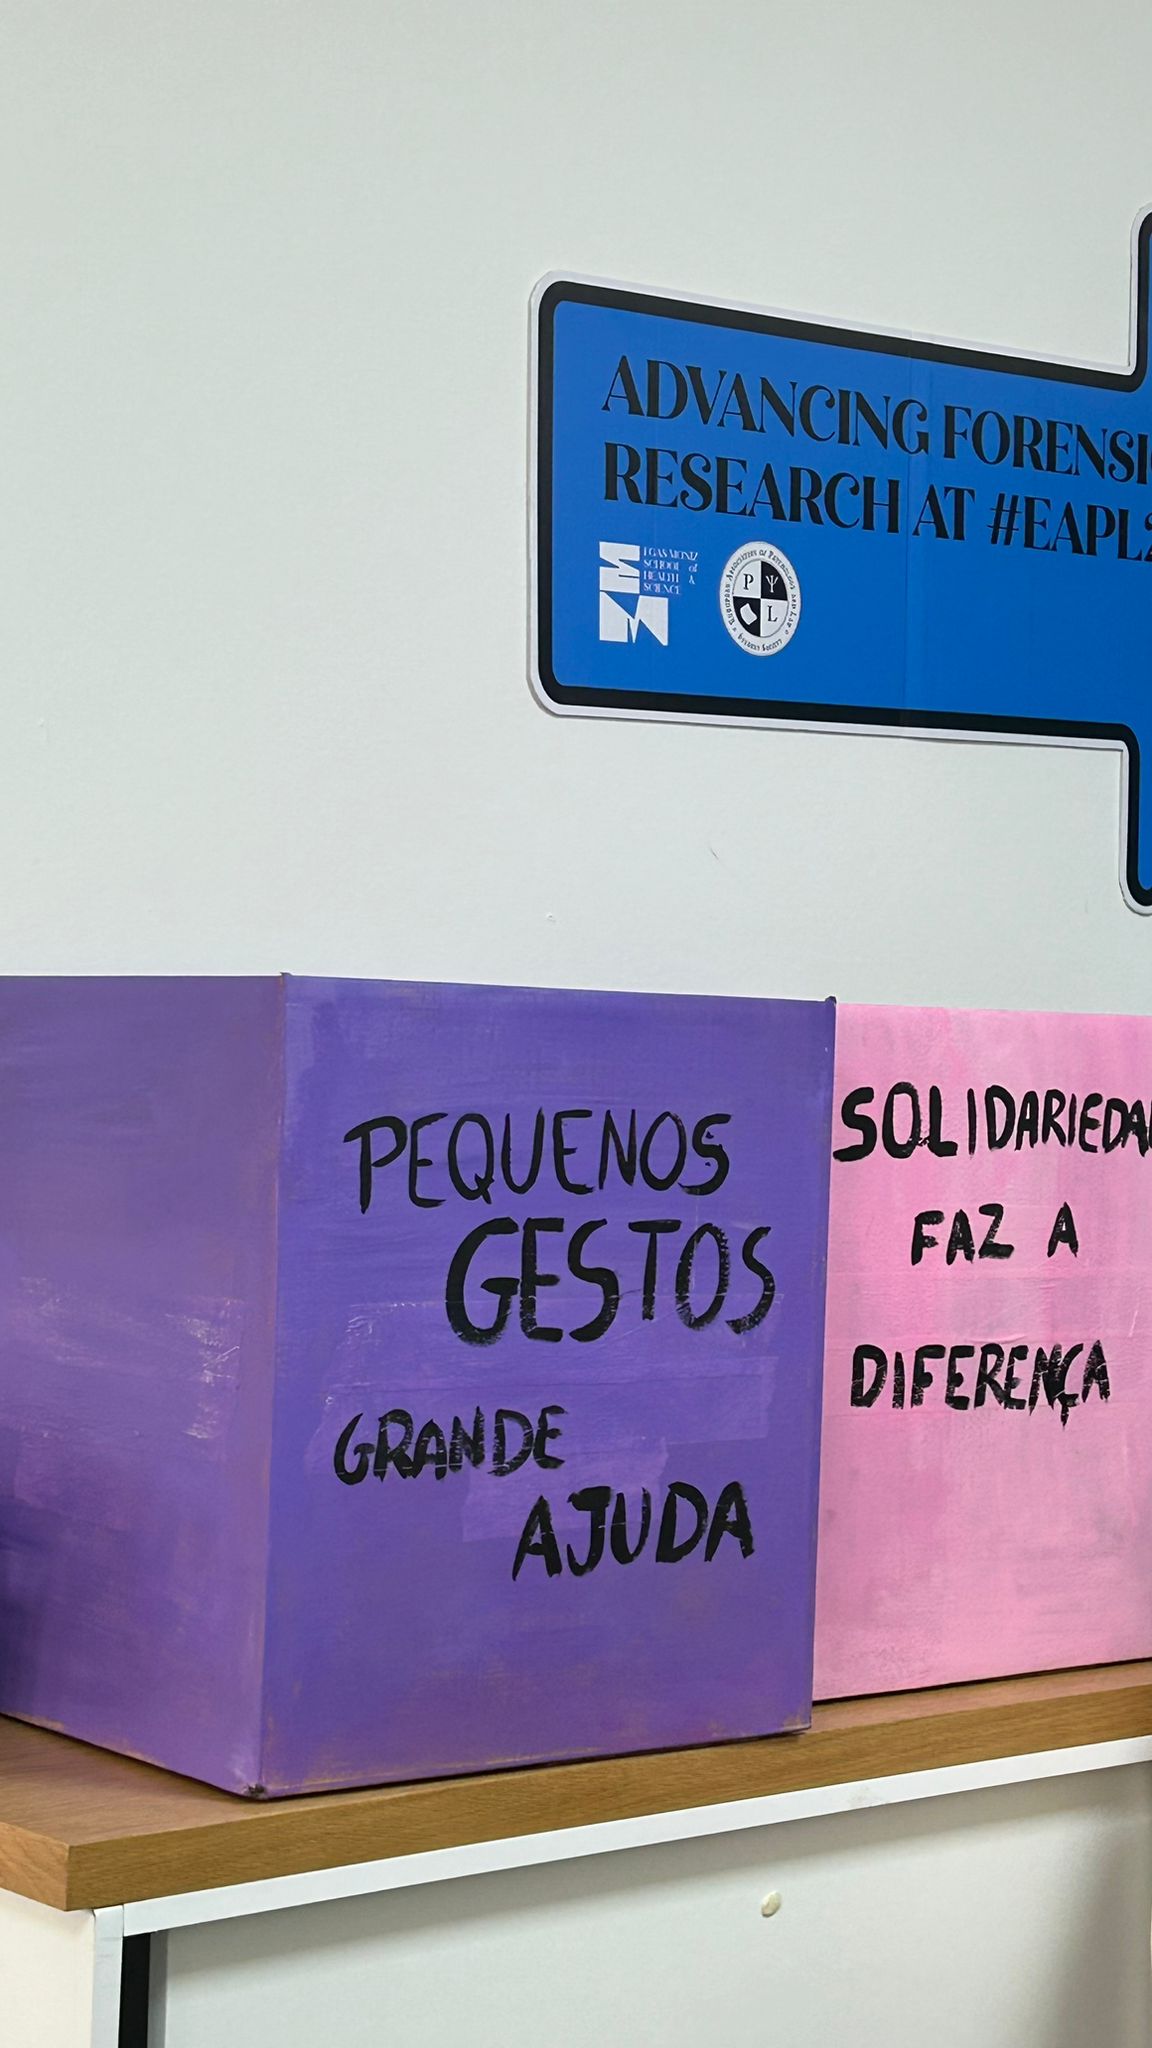 ADVANCING FORENSIC
RESEARCH AT #EAPL2
EGAS MONIZ
SCHOOL of
HEALTH &
SCIENCE
EUROPEAN ASSOCIATION OF PSYCHOLOGY AND LAW
STUDENT SOCIETY
P Ψ
L
PEQUENOS
GESTOS
GRANDE
AJUDA
SOLIDARIEDA
FAZ A
DIFERENÇA